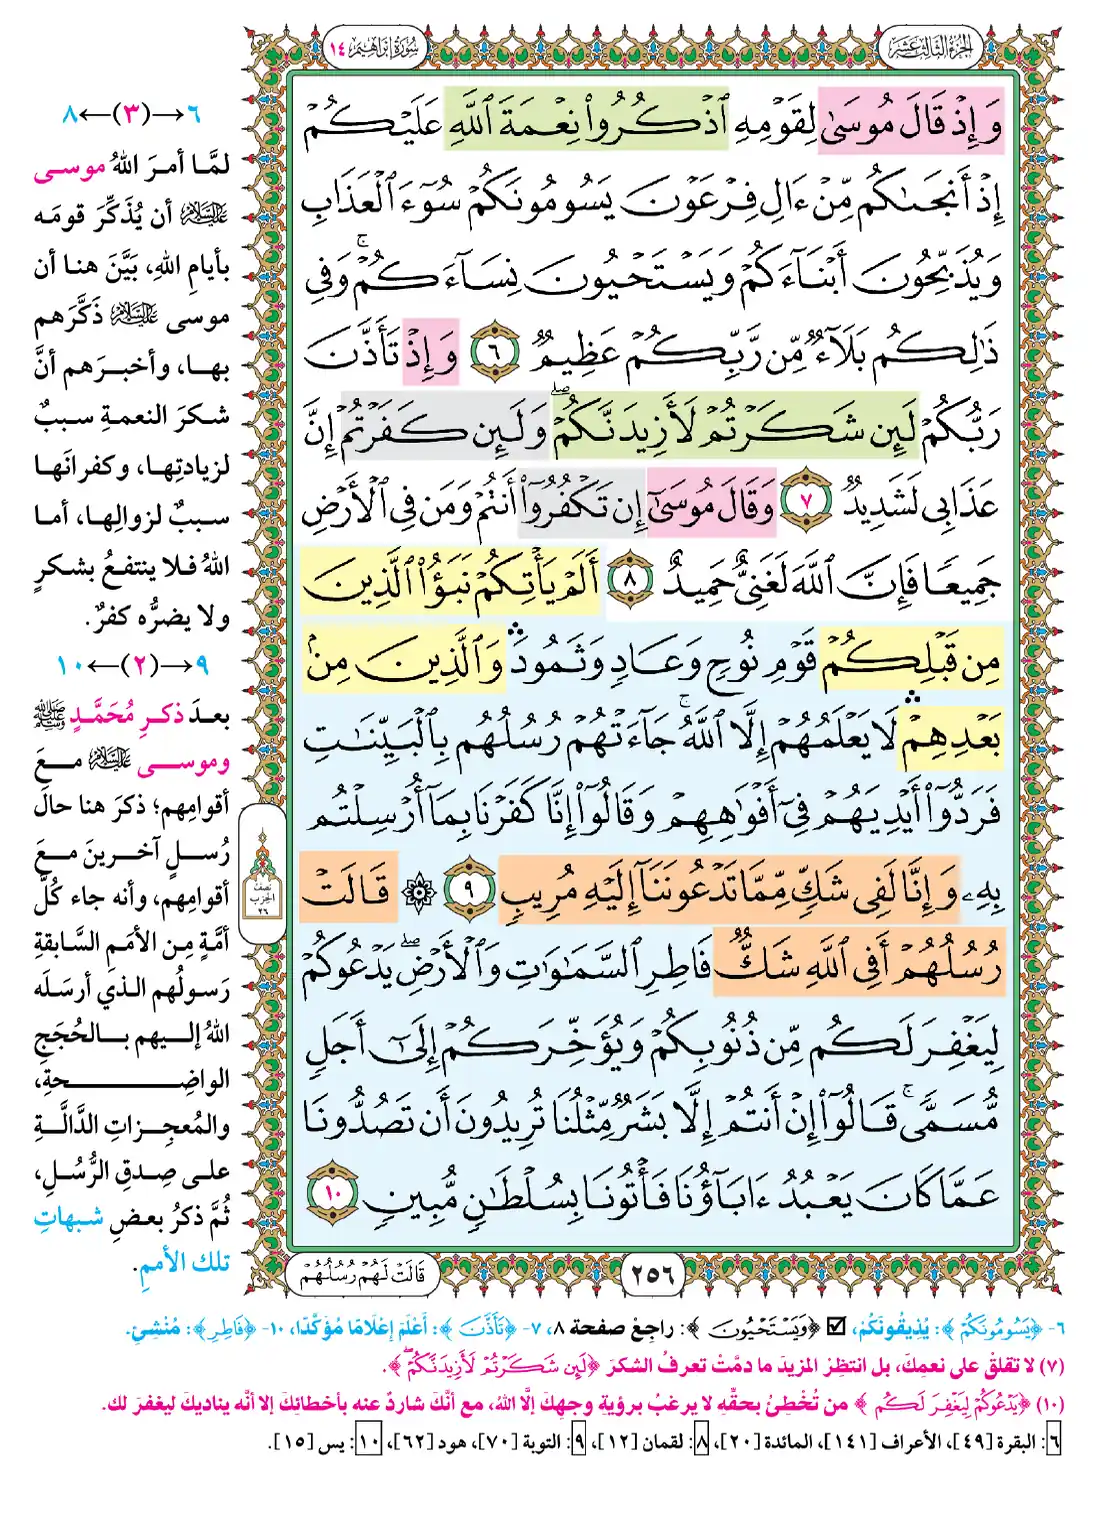 الجزء الثالث عشر
سورة إبراهيم ١٤
وَإِذْ قَالَ مُوسَىٰ لِقَوْمِهِ ٱذْكُرُوا۟ نِعْمَةَ ٱللَّهِ عَلَيْكُمْ
إِذْ أَنجَىٰكُم مِّنْ ءَالِ فِرْعَوْنَ يَسُومُونَكُمْ سُوٓءَ ٱلْعَذَابِ
وَيُذَبِّحُونَ أَبْنَآءَكُمْ وَيَسْتَحْيُونَ نِسَآءَكُمْ ۚ وَفِى
ذَٰلِكُم بَلَآءٌ مِّن رَّبِّكُمْ عَظِيمٌ ٦ وَإِذْ تَأَذَّنَ
رَبُّكُمْ لَئِن شَكَرْتُمْ لَأَزِيدَنَّكُمْ ۖ وَلَئِن كَفَرْتُمْ إِنَّ
عَذَابِى لَشَدِيدٌ ٧ وَقَالَ مُوسَىٰٓ إِن تَكْفُرُوٓا۟ أَنتُمْ وَمَن فِى ٱلْأَرْضِ
جَمِيعًا فَإِنَّ ٱللَّهَ لَغَنِىٌّ حَمِيدٌ ٨ أَلَمْ يَأْتِكُمْ نَبَؤُا۟ ٱلَّذِينَ
مِن قَبْلِكُمْ قَوْمِ نُوحٍ وَعَادٍ وَثَمُودَ ۛ وَٱلَّذِينَ مِنۢ
بَعْدِهِمْ ۛ لَا يَعْلَمُهُمْ إِلَّا ٱللَّهُ ۚ جَآءَتْهُمْ رُسُلُهُم بِٱلْبَيِّنَٰتِ
فَرَدُّوٓا۟ أَيْدِيَهُمْ فِىٓ أَفْوَٰهِهِمْ وَقَالُوٓا۟ إِنَّا كَفَرْنَا بِمَآ أُرْسِلْتُم
بِهِۦ وَإِنَّا لَفِى شَكٍّ مِّمَّا تَدْعُونَنَآ إِلَيْهِ مُرِيبٍ ٩ ۞ قَالَتْ
رُسُلُهُمْ أَفِى ٱللَّهِ شَكٌّ فَاطِرِ ٱلسَّمَٰوَٰتِ وَٱلْأَرْضِ ۖ يَدْعُوكُمْ
لِيَغْفِرَ لَكُم مِّن ذُنُوبِكُمْ وَيُؤَخِّرَكُمْ إِلَىٰٓ أَجَلٍ
مُّسَمًّى ۚ قَالُوٓا۟ إِنْ أَنتُمْ إِلَّا بَشَرٌ مِّثْلُنَا تُرِيدُونَ أَن تَصُدُّونَا
عَمَّا كَانَ يَعْبُدُ ءَابَآؤُنَا فَأْتُونَا بِسُلْطَٰنٍ مُّبِينٍ ١٠
٢٥٦
قَالَتْ لَهُمْ رُسُلُهُمْ
نصف
الحزب
٢٦
٦→(٣)←٨
لمَّا أمرَ اللهُ موسى
عليه السلام أن يُذَكِّرَ قومَه
بأيامِ اللهِ، بَيَّنَ هنا أن
موسى عليه السلام ذَكَّرَهم
بها، وأخبرَهم أنَّ
شكرَ النعمةِ سببٌ
لزيادتِها، وكفرانَها
سببٌ لزوالِها، أما
اللهُ فلا ينتفعُ بشكرٍ
ولا يضرُّه كفرٌ.
٩→(٢)←١٠
بعدَ ذكرِ مُحَمَّدٍ ﷺ
وموسى عليه السلام معَ
أقوامِهم؛ ذكرَ هنا حالَ
رُسلٍ آخرينَ معَ
أقوامِهم، وأنه جاء كُلَّ
أمَّةٍ مِن الأمَمِ السَّابقةِ
رَسولُهم الذي أرسَلَه
اللهُ إليهم بالحُجَجِ
الواضِحةِ،
والمُعجِزاتِ الدَّالَّةِ
على صِدقِ الرُّسُلِ،
ثُمَّ ذكرُ بعضِ شبهاتِ
تلك الأممِ.
٦- ﴿يَسُومُونَكُمْ﴾: يُذِيقُونَكُمْ، ☑ ﴿وَيَسْتَحْيُونَ﴾: راجِعْ صفحة ٨، ٧- ﴿تَأَذَّنَ﴾: أَعْلَمَ إِعْلَامًا مُؤَكَّدًا، ١٠- ﴿فَاطِرِ﴾: مُنْشِئِ.
(٧) لا تقلقْ على نعمِكَ، بل انتظِرْ المزيدَ ما دمَّتَ تعرفُ الشكرَ ﴿لَئِن شَكَرْتُمْ لَأَزِيدَنَّكُمْ ۖ﴾.
(١٠) ﴿يَدْعُوكُمْ لِيَغْفِرَ لَكُم﴾ من تُخْطِئُ بحقِّهِ لا يرغبُ برؤيةِ وجهِكَ إلَّا اللهُ، مع أنَّكَ شاردٌ عنه بأخطائِكَ إلا أنَّه يناديكَ ليغفرَ لك.
٦: البقرة [٤٩]، الأعراف [١٤١]، المائدة [٢٠]، ٨: لقمان [١٢]، ٩: التوبة [٧٠]، هود [٦٢]، ١٠: يس [١٥].